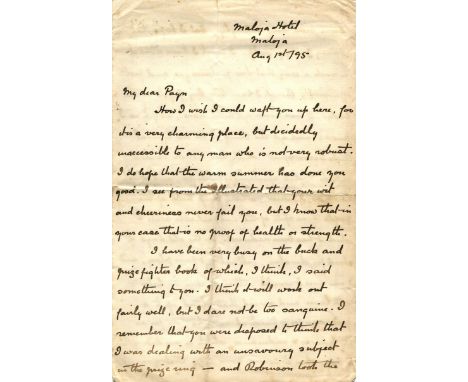 Maloja Hotel
Maloja
Aug 1st/95
My dear Payn
How I wish I could waft you up here, for
it is a very charming place, but decidedly
inaccessible to any man who is not very robust.
I do hope that the warm summer has done you
good. I see from the Illustrated that your wit
and cheeriness never fail you, but I know that in
your case that is no proof of health or strength.
I have been very busy on the buck and
prize fighter book of which, I think, I said
something to you. I think it will work out
fairly well, but I dare not be too sanguine. I
remember that you were disposed to think that
I was dealing with an unsavoury subject
in the prize ring — and Robinson took the